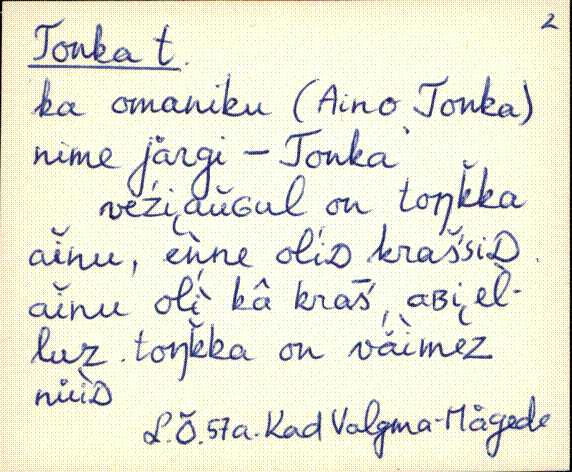 2
Tonka t.
ka omaniku (Aino Tonka)
nime järgi – Tonka
veźi̮aŭGul on toŋk̆ka
aĭnu, eǹne oĺiD kraš̆śiD.
aĭnu oĺì kâ kraš̄́, aBi̮èl-
luz. toŋk̆ka on väìmez
nüìD
L.Õ. 57a. Kad Valgma-Mägede